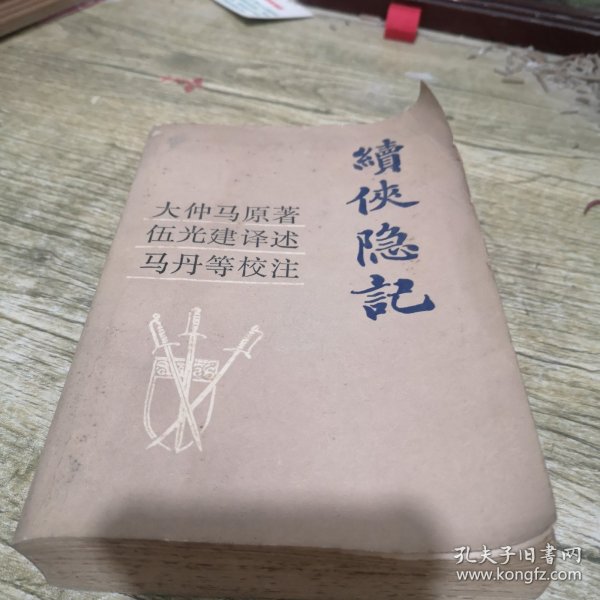 續俠隐記
大仲马原著
伍光建译述
马丹等校注
孔夫子旧书网
www.kongfz.com